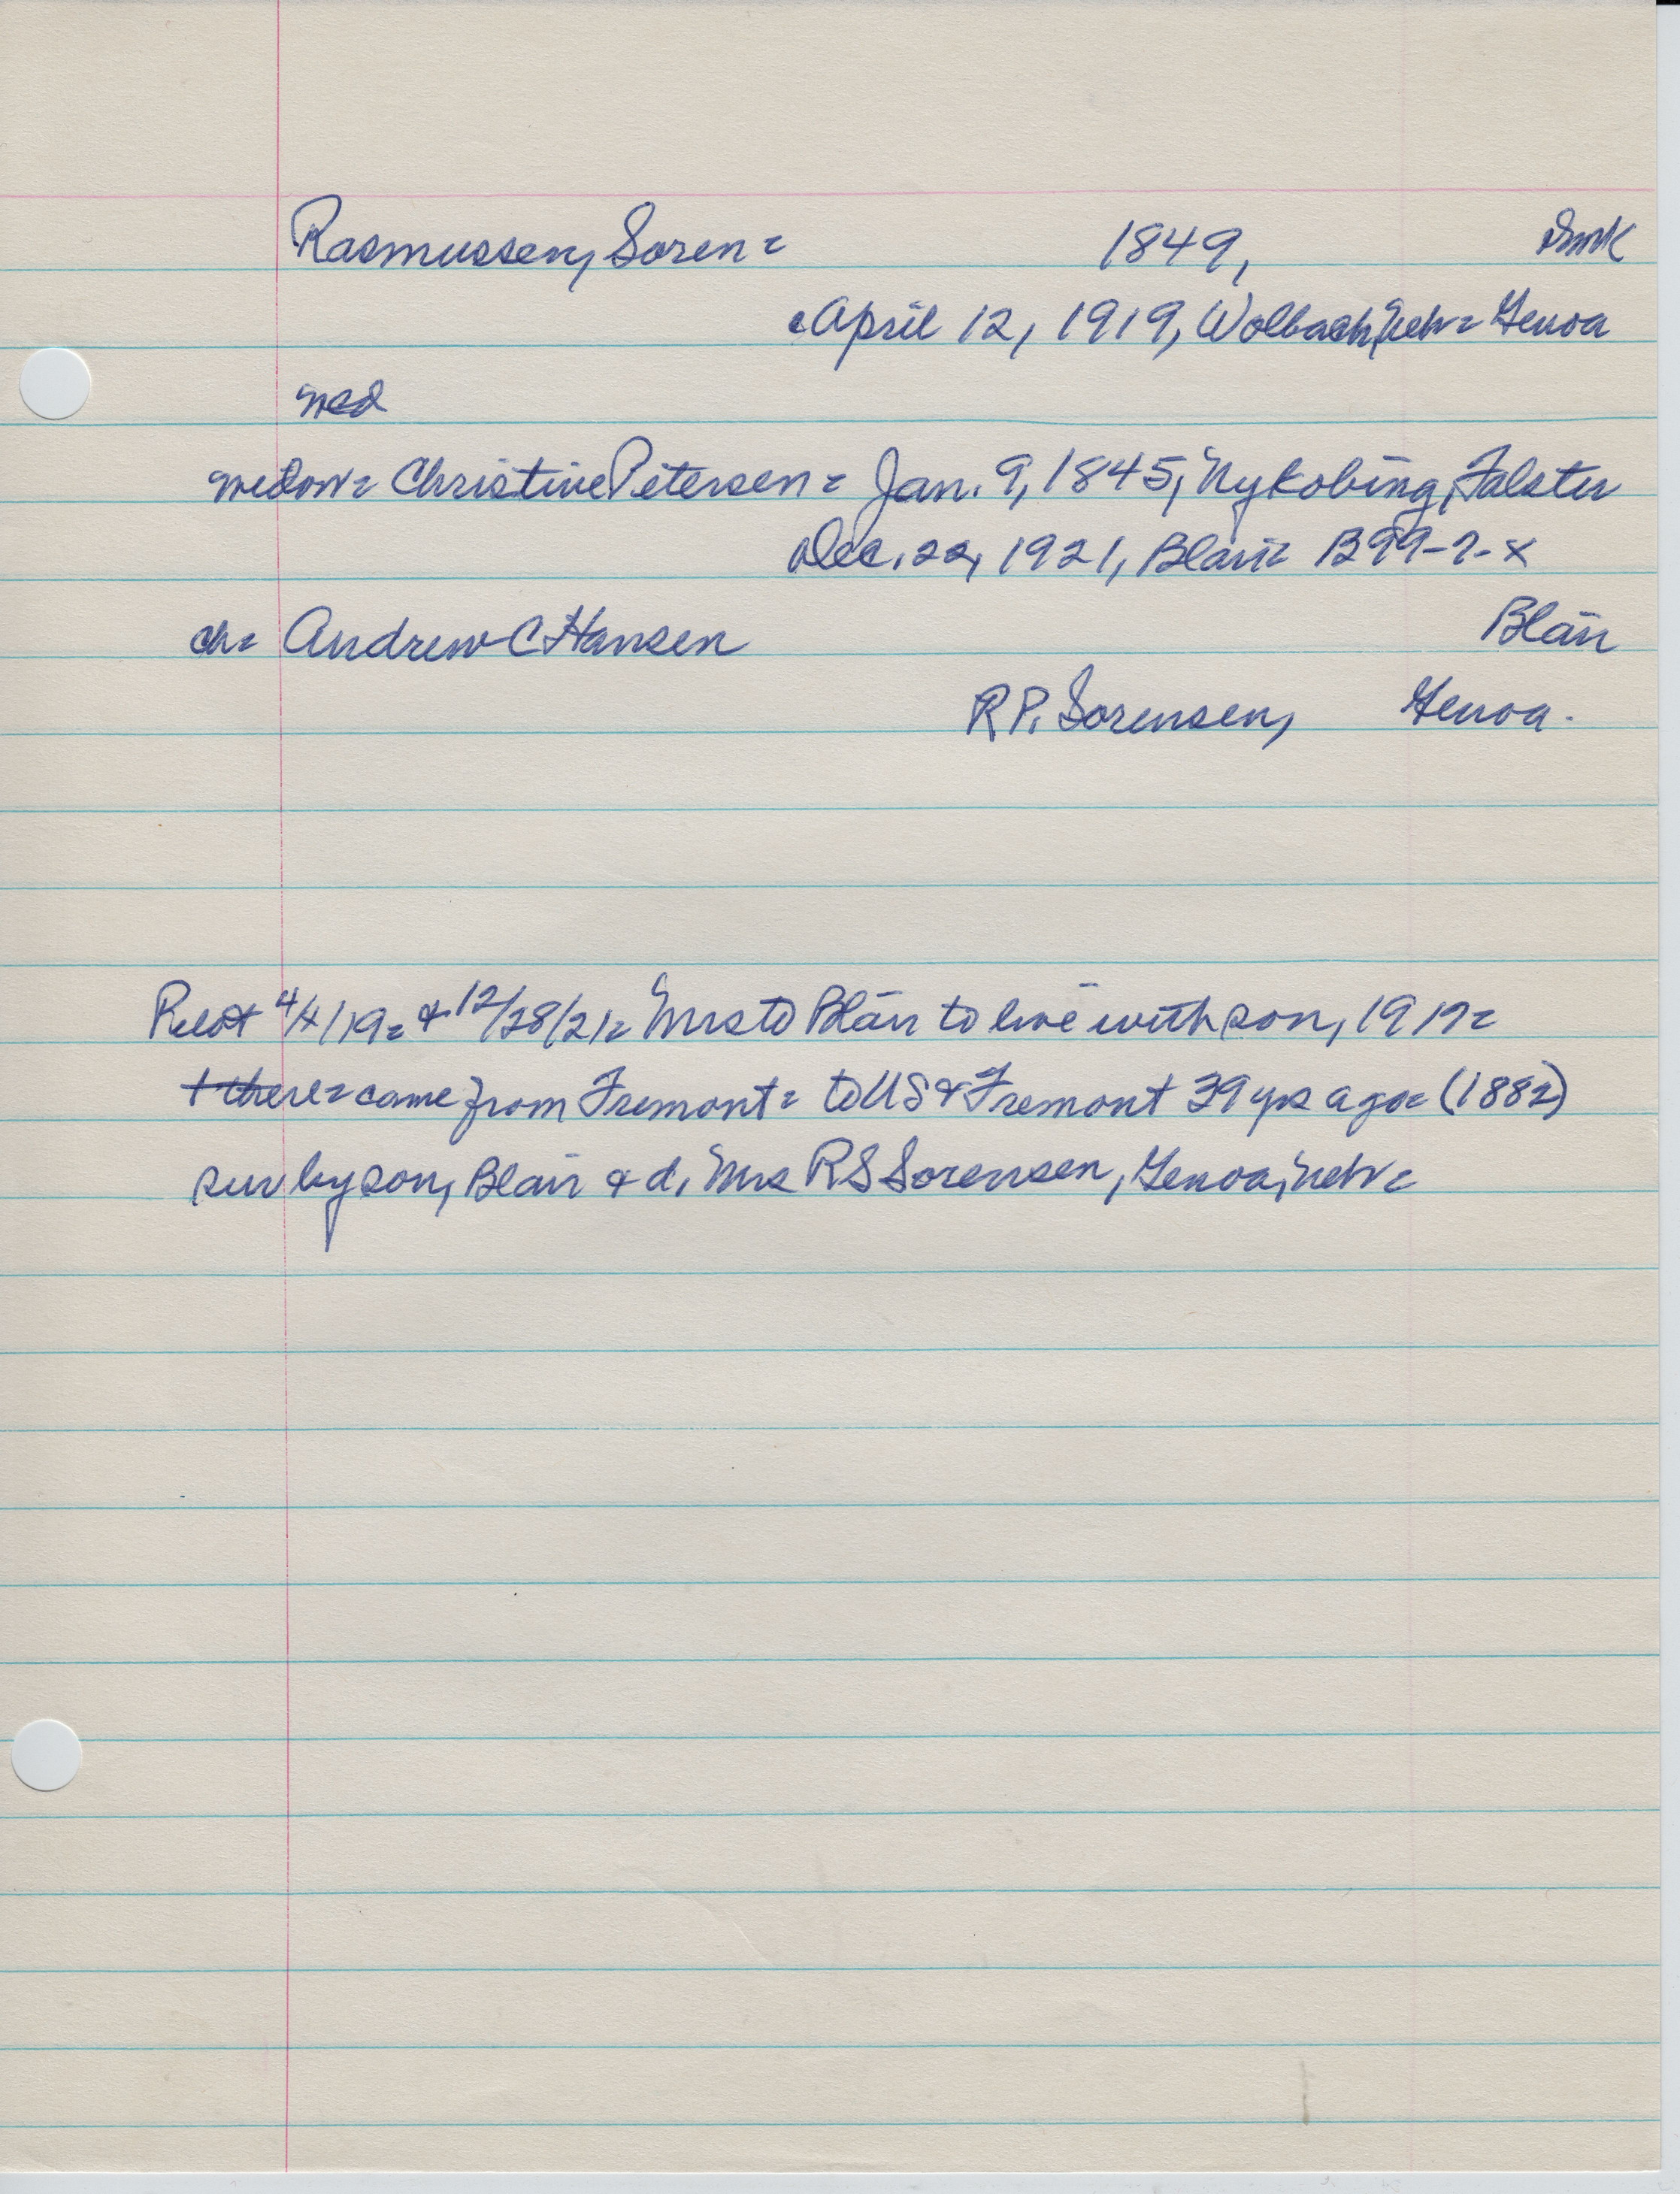 Rasmussen, Soren = 1849, Dmk
April 12, 1919, Wolbach, Neb = Genoa
wed
widow = Christine Petersen = Jan. 9, 1845, Nykobing, Falster
Dec. 22, 1921, Blair = B99-?-x
ch = Andrew C Hansen Blair
R P. Sorensen, Genoa.
4/x/19 = & 12/28/21 = Mrs to Blair to live with son, 1919 =
there = came from Fremont = to US & Fremont 39 yrs ago = (1882)
sur by son, Blair & d, Mrs R S Sorensen, Genoa, Neb =